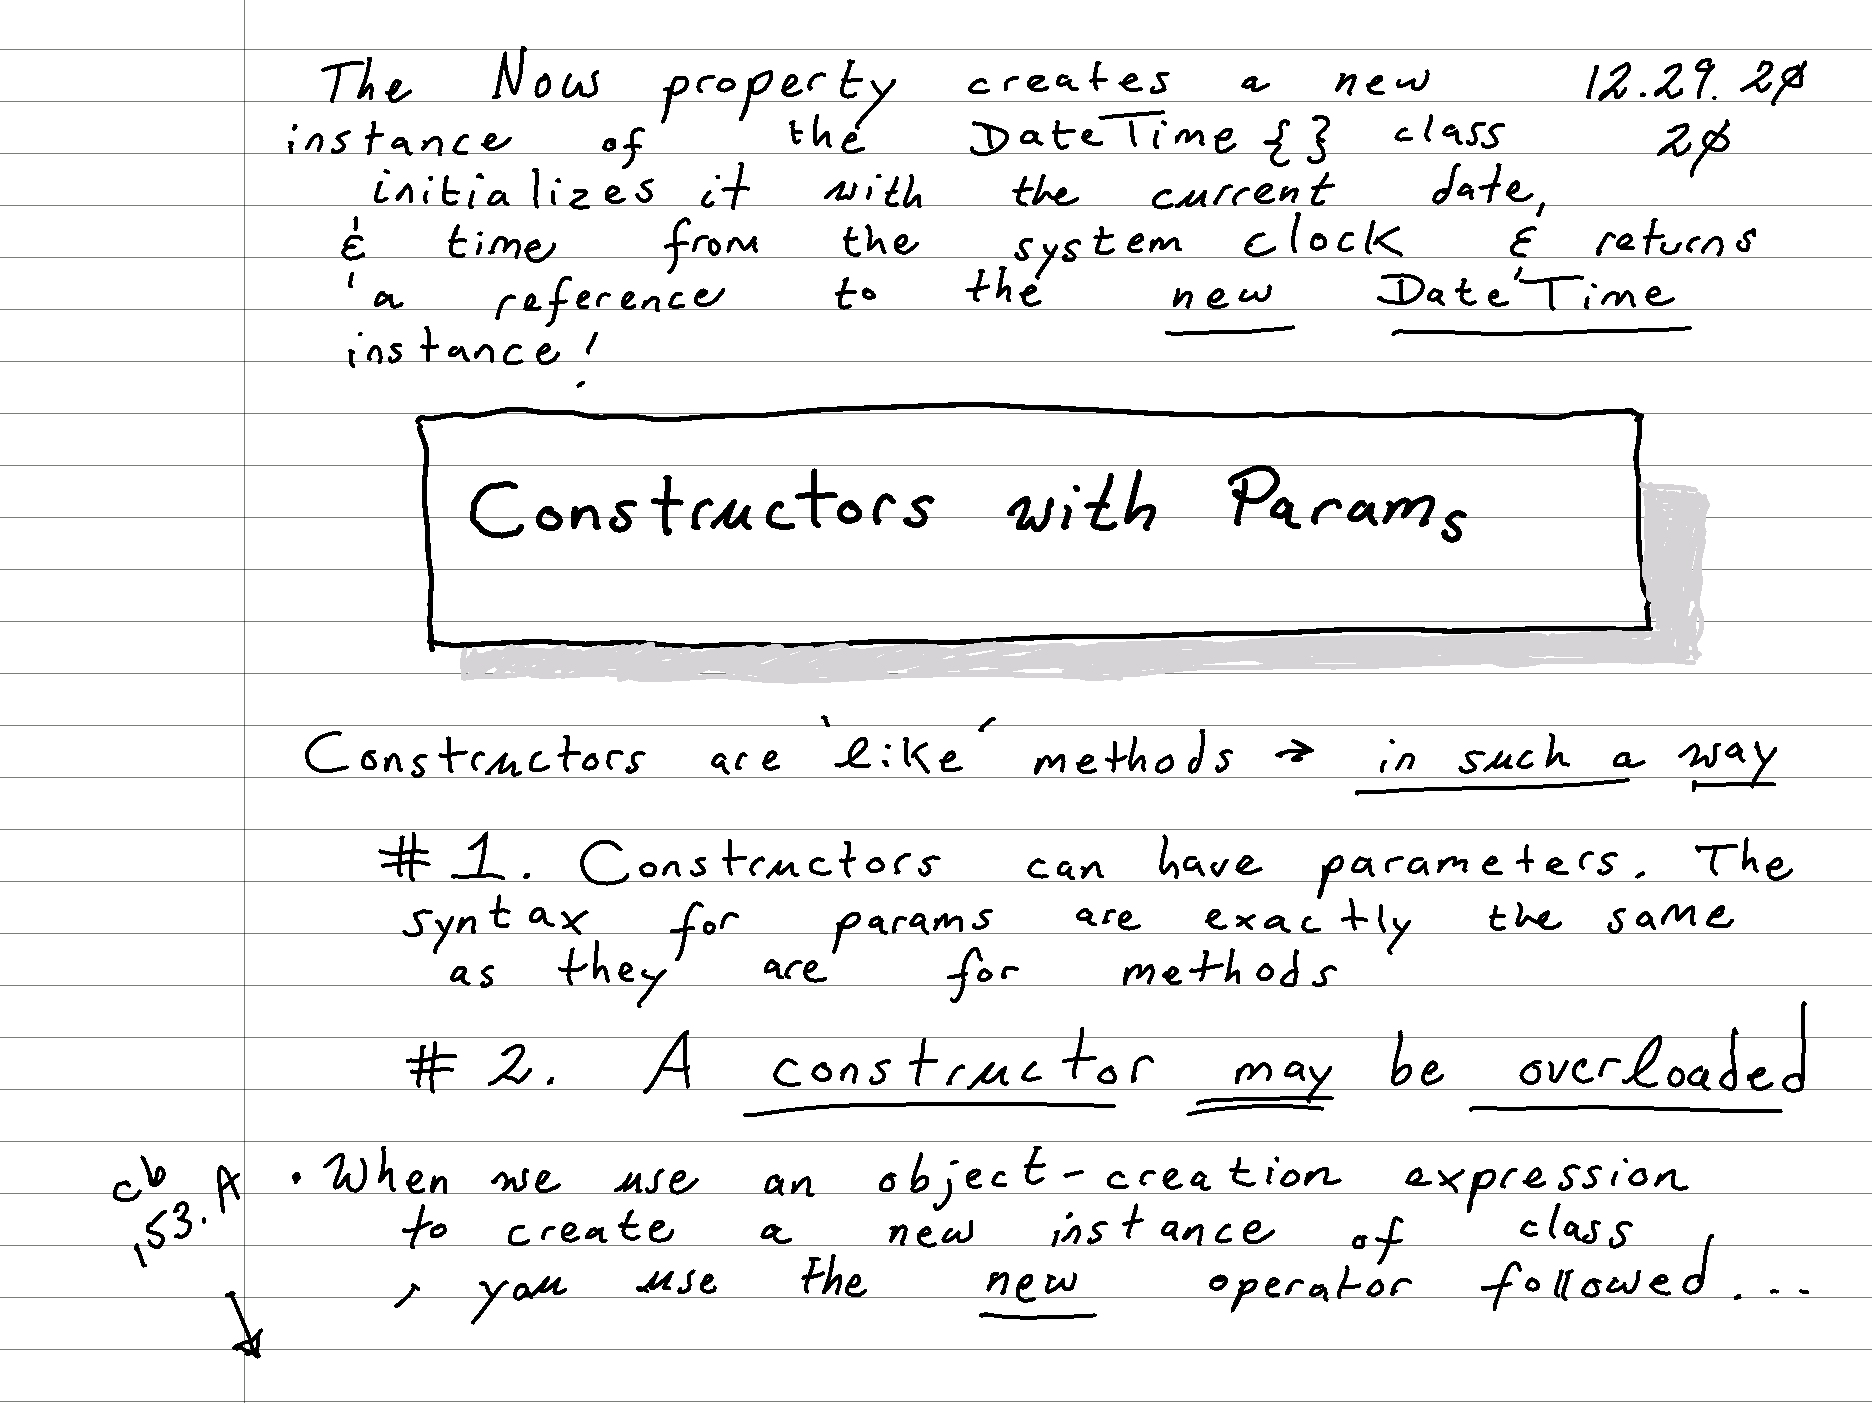 The Now property creates a new 12.29.20
instance of the DateTime {} class 20
initializes it with the current date,
& time from the system clock & returns
a reference to the new DateTime
instance!
Constructors with Params
Constructors are 'like' methods → in such a way
#1. Constructors can have parameters. The
syntax for params are exactly the same
as they are for methods
#2. A constructor may be overloaded
cb • When we use an object-creation expression
153.A to create a new instance of class
, you use the new operator followed...